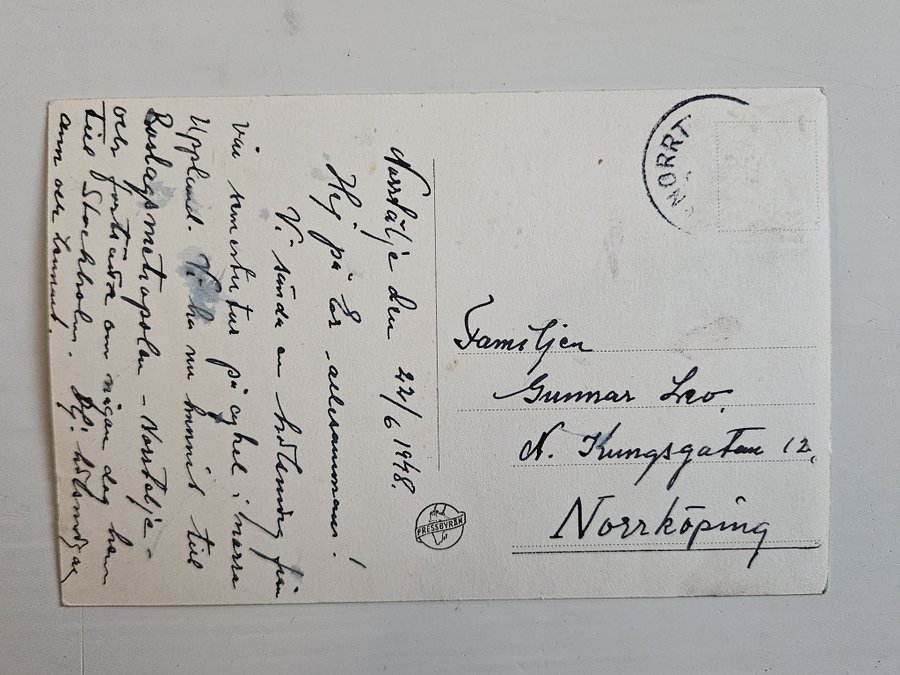 Norrtälje den 22/6 1948.
Hej på Er, allesammans!
Vi sända en hälsning från
vår semestertur på cykel i norra
Uppland. Vi ha nu hunnit till
Roslagsmetropolen – Norrtälje –
och fortsätta om någon dag hem
till Stockholm. Hj. hälsningar
och
PRESSBYRÅN
NORRT
Familjen
Gunnar Leo
N. Kungsgatan 12,
Norrköping